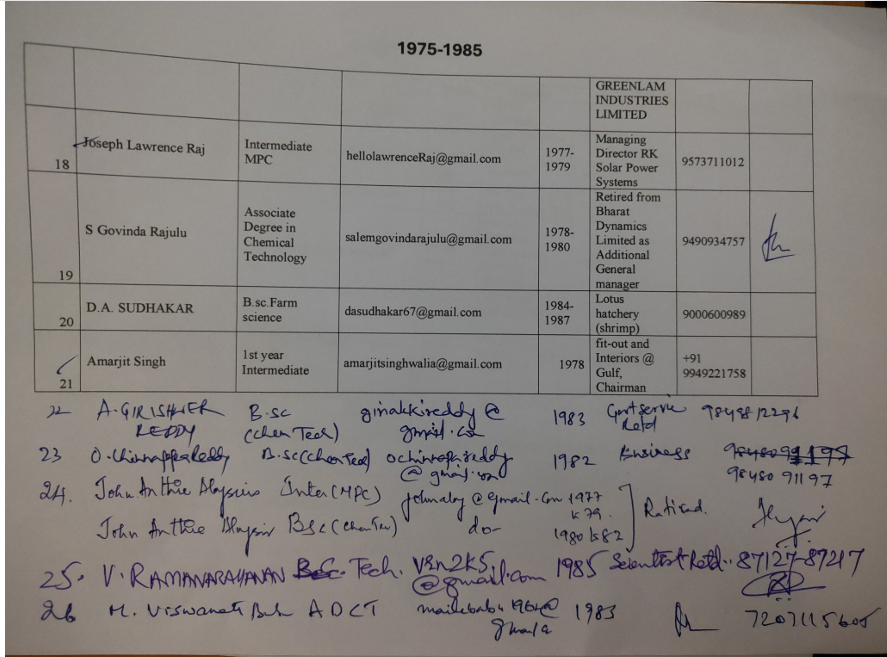 1975-1985
GREENLAM INDUSTRIES LIMITED
18 Joseph Lawrence Raj Intermediate MPC hellolawrenceRaj@gmail.com 1977-1979 Managing Director RK Solar Power Systems 9573711012
19 S Govinda Rajulu Associate Degree in Chemical Technology salemgovindarajulu@gmail.com 1978-1980 Retired from Bharat Dynamics Limited as Additional General manager 9490934757
20 D.A. SUDHAKAR B.sc.Farm science dasudhakar67@gmail.com 1984-1987 Lotus hatchery (shrimp) 9000600989
21 Amarjit Singh 1st year Intermediate amarjitsinghwalia@gmail.com 1978 fit-out and Interiors @ Gulf, Chairman +91 9949221758
22 A. GIRISHWER REDDY B.sc (Chem Tech) @ gmail.com 1983 Govt Service Retd
23 O. Chinnappa Reddy B.sc (Chem Tech) ochinnapareddy @ gmail.com 1982 Business 98480 91197
24. John Anthie Aloysius Inter (MPC) johnaloy@gmail.com 1977 to 79
John Anthie Bsc (Chem Tec) -do- 1980 to 82 Retired.
25. V. RAMANARAYANAN Tech. vrn2k5 @gmail.com 1985 Scientist Retd. 87127-87217
26 M. Viswanath Babu ADCT 1983 7207115605